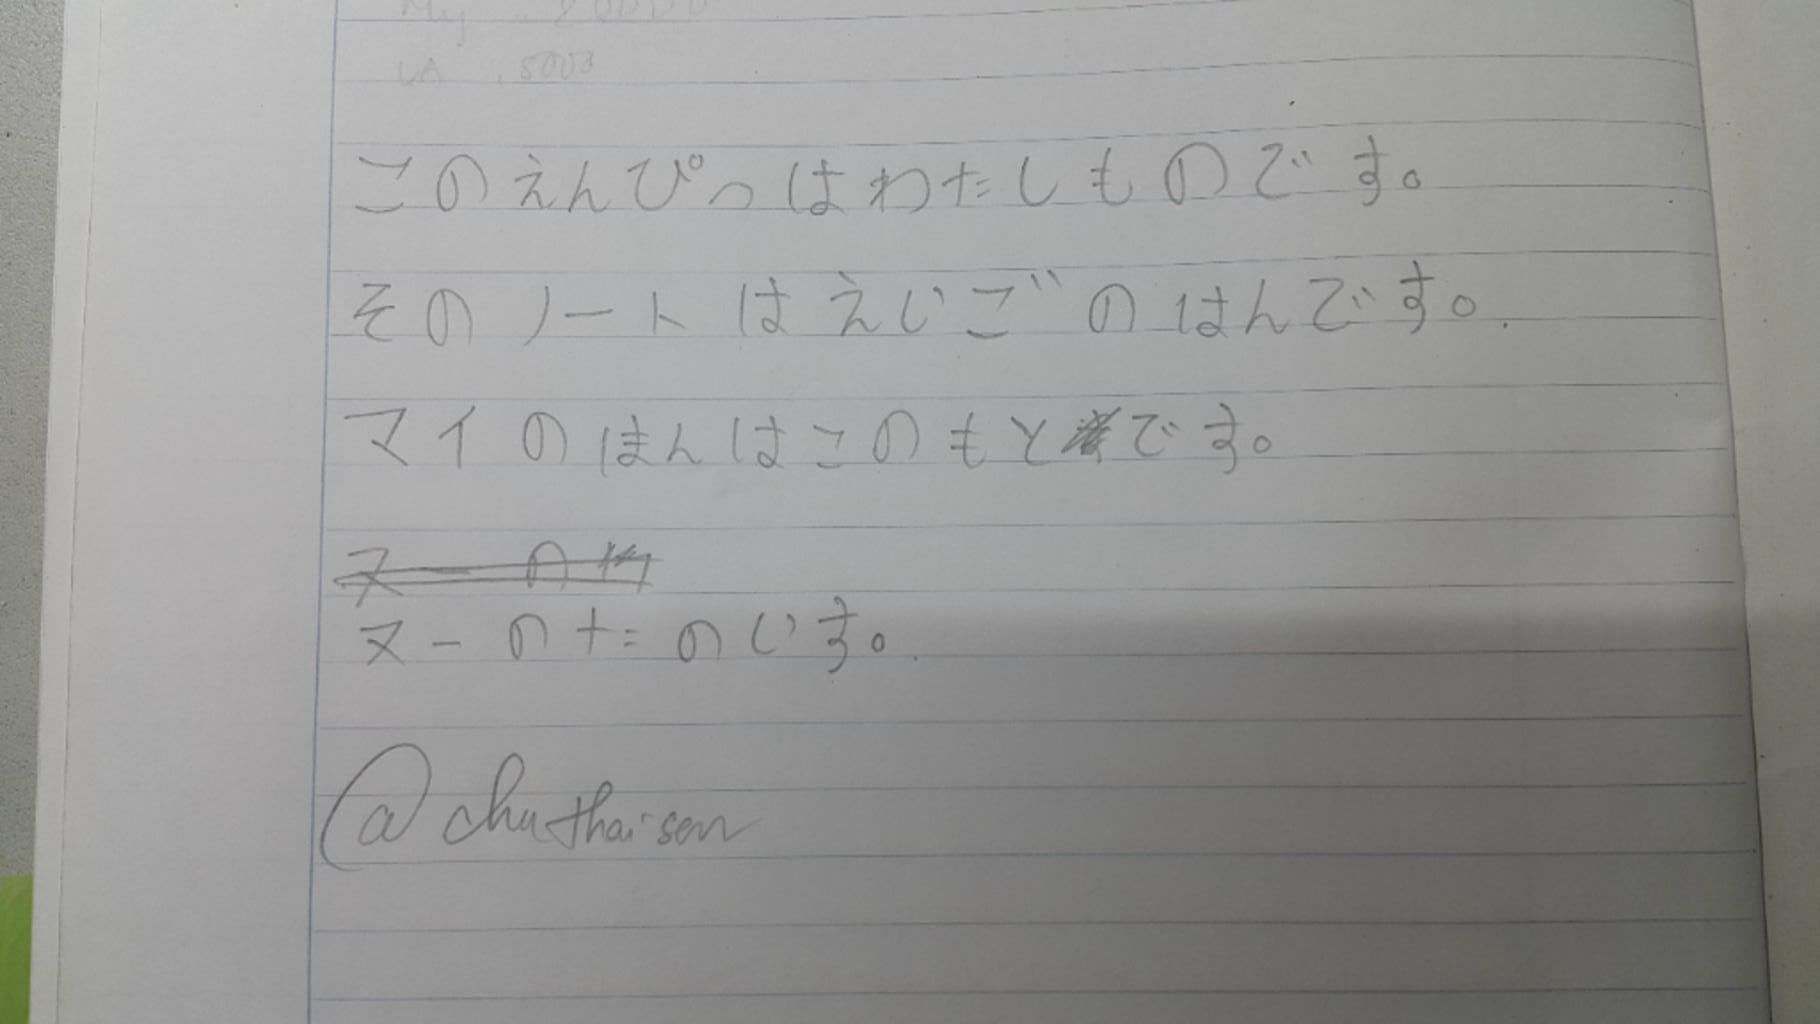 My 20000
LA 5003
このえんぴつはわたしものです。
そのノートはえいごのはんです。
マイのほんはこのもとです。
ヌーの
ヌーのたのいす。
@chuthaisen